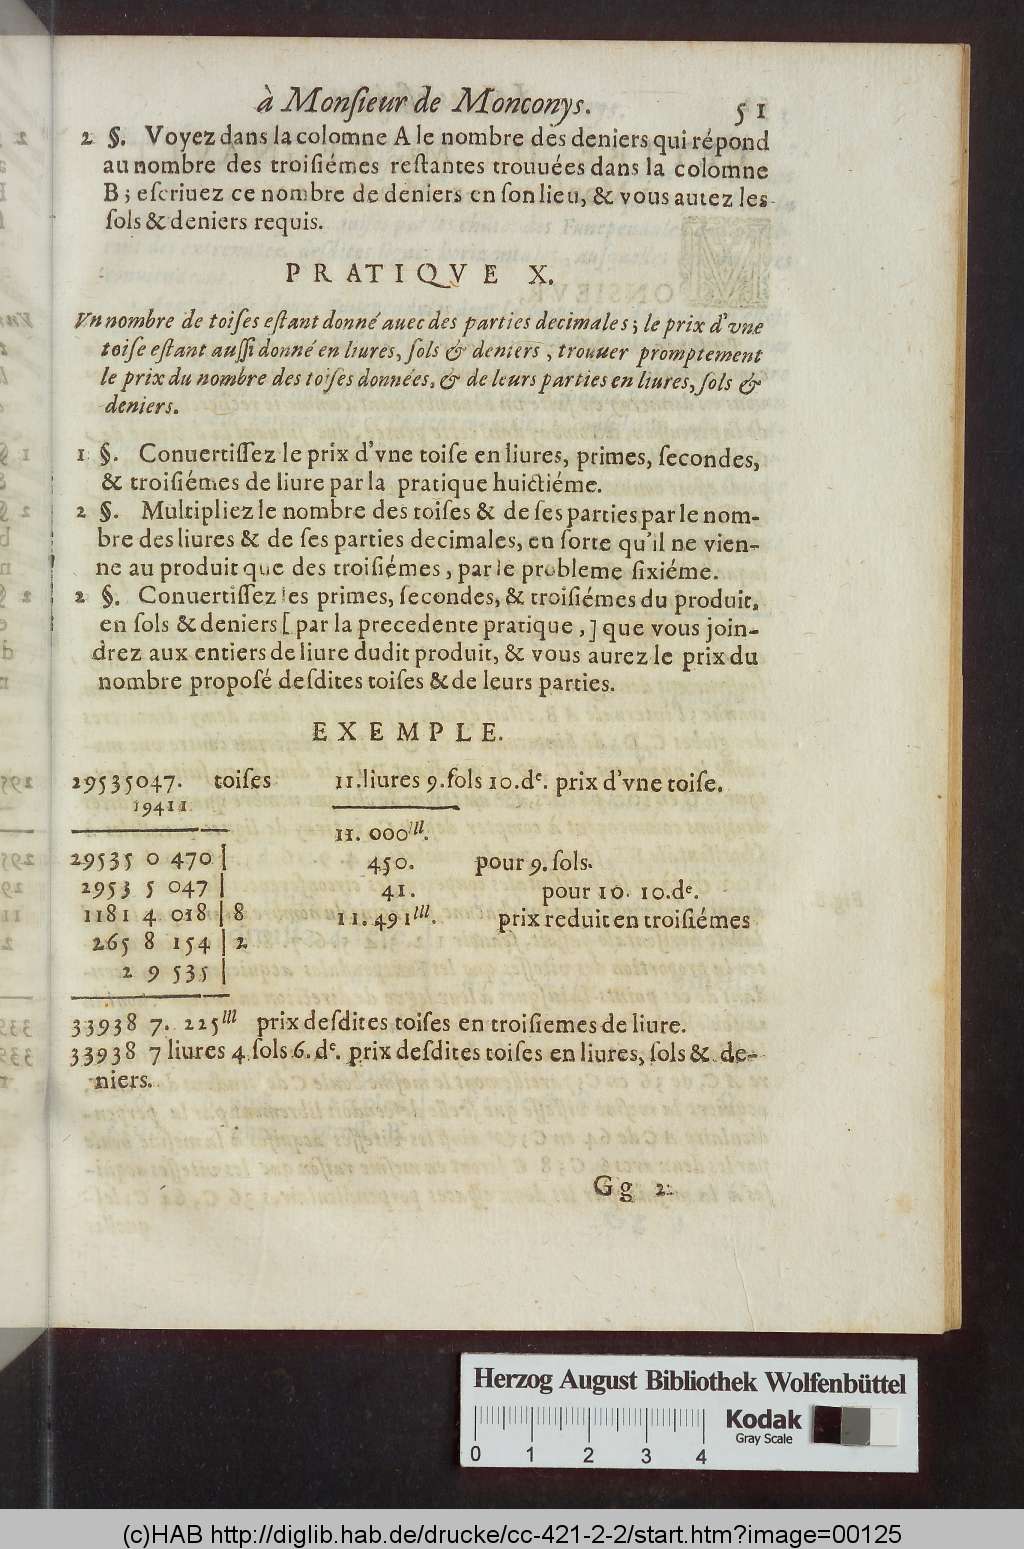 à Monſieur de Monconys. 51
2 §. Voyez dans la colomne A le nombre des deniers qui répond
au nombre des troiſiémes reſtantes trouuées dans la colomne
B; eſcriuez ce nombre de deniers en ſon lieu, & vous autez les
ſols & deniers requis.
PRATIQVE X.
Vn nombre de toiſes eſtant donné auec des parties decimales; le prix d'vne
toiſe eſtant auſſi donné en liures, ſols & deniers, trouuer promptement
le prix du nombre des toiſes données, & de leurs parties en liures, ſols &
deniers.
1 §. Conuertiſſez le prix d'vne toiſe en liures, primes, ſecondes,
& troiſiémes de liure par la pratique huictiéme.
2 §. Multipliez le nombre des toiſes & de ſes parties par le nom-
bre des liures & de ſes parties decimales, en ſorte qu'il ne vien-
ne au produit que des troiſiémes, par le probleme ſixiéme.
2 §. Conuertiſſez les primes, ſecondes, & troiſiémes du produit,
en ſols & deniers [par la precedente pratique,] que vous join-
drez aux entiers de liure dudit produit, & vous aurez le prix du
nombre propoſé deſdites toiſes & de leurs parties.
EXEMPLE.
29535047. toiſes 11.liures 9.ſols 10.dᵉ. prix d'vne toiſe.
19411
11. 000ᴵᴵᴵ.
29535 0 470 |
450. pour 9. ſols.
2953 5 047 |
41. pour 10. 10.dᵉ.
1181 4 018 | 8
11.491ᴵᴵᴵ. prix reduit en troiſiémes
265 8 154 | 2
2 9 535 |
33938 7. 225ᴵᴵᴵ prix deſdites toiſes en troiſiemes de liure.
33938 7 liures 4 ſols 6. dᵉ. prix deſdites toiſes en liures, ſols & de-
niers.
Gg 2
Herzog August Bibliothek Wolfenbüttel
Kodak
Gray Scale
0 1 2 3 4
(c)HAB http://diglib.hab.de/drucke/cc-421-2-2/start.htm?image=00125